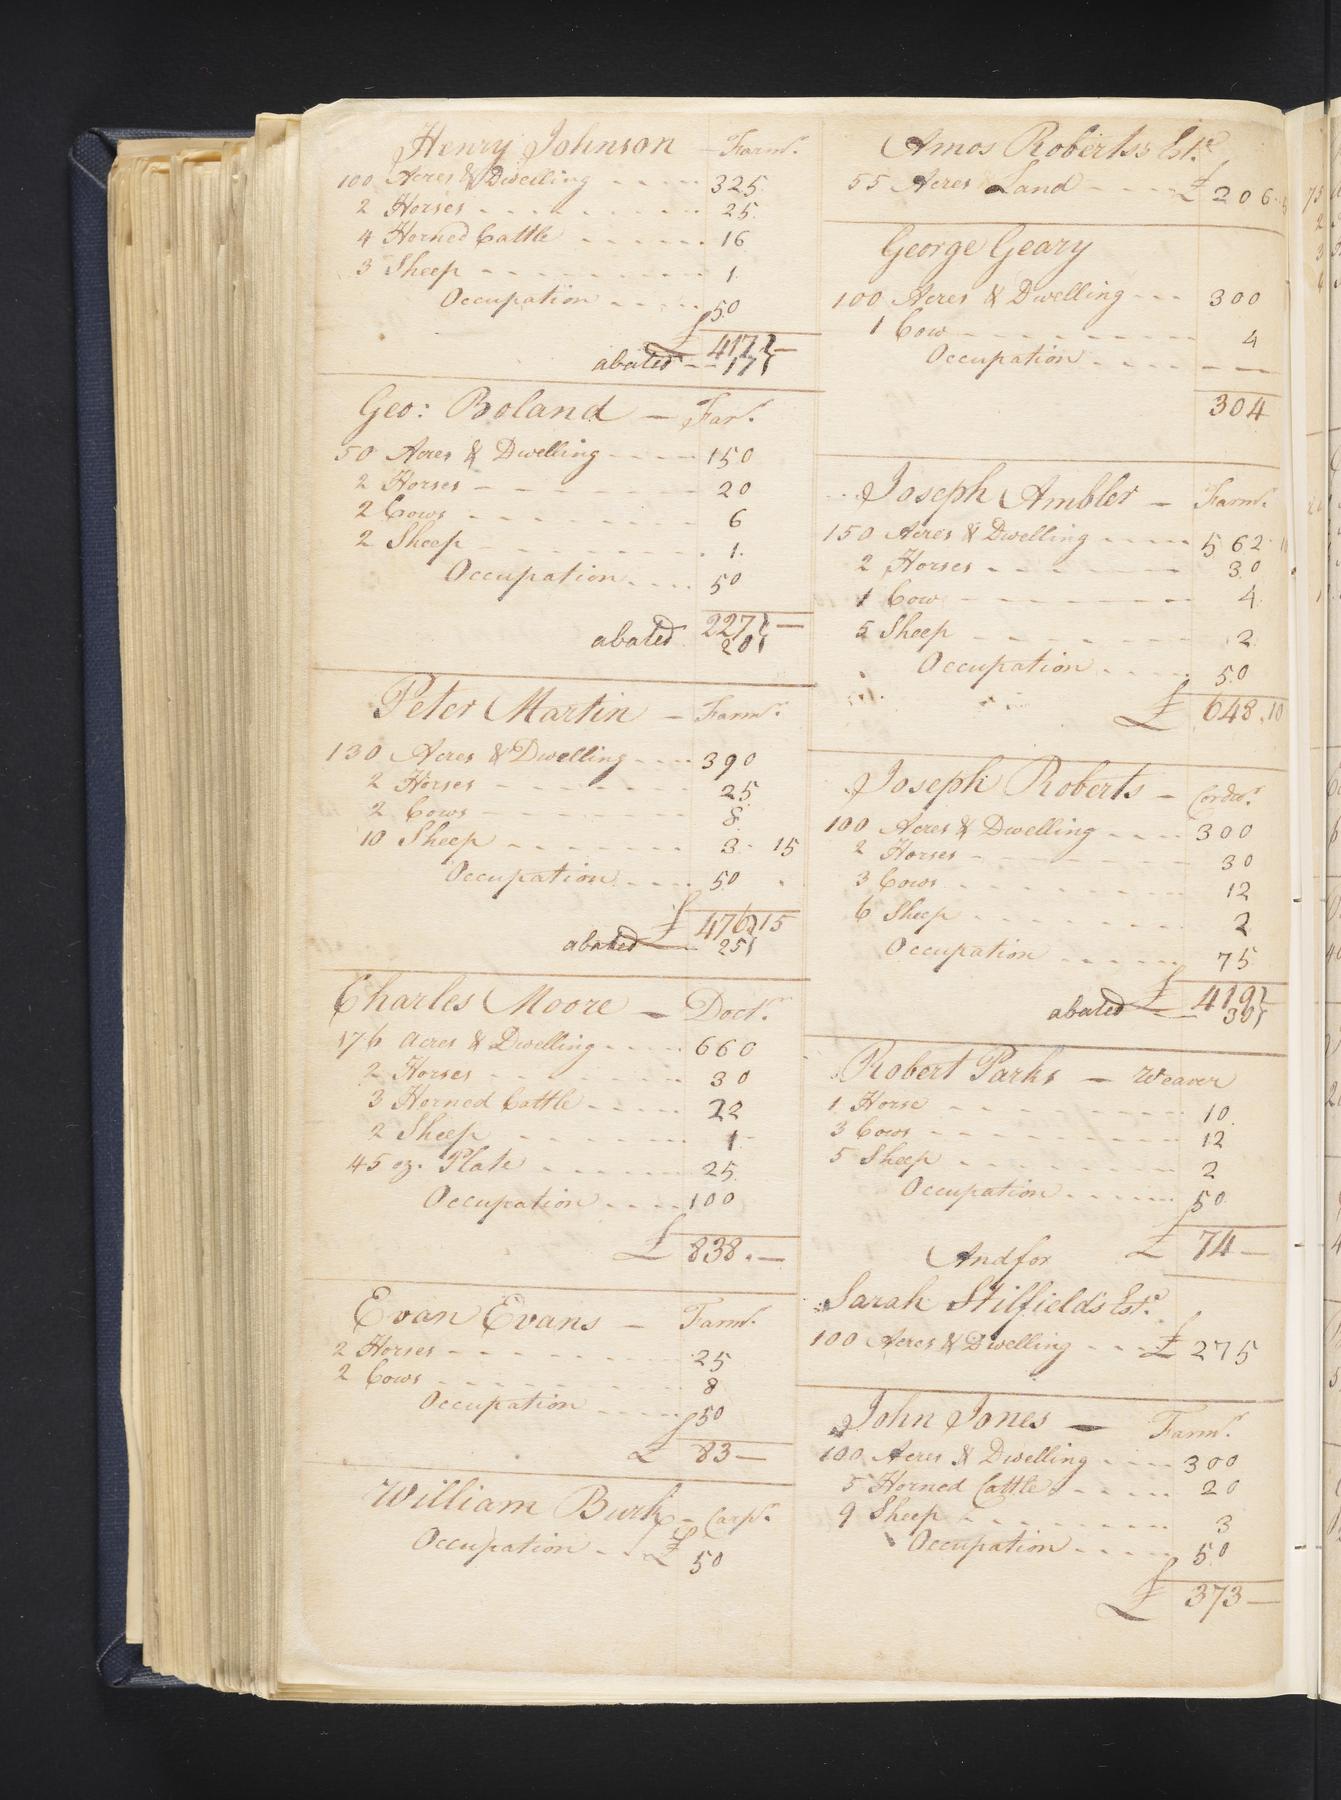 Henry Johnson - Farmr.
100 Acres & Dwelling - - - - 325
2 Horses - - - - - - - - 25.
4 Horned Cattle - - - - - - 16
3 Sheep - - - - - - - - 1.
Occupation - - - - - 50
£ 417 -
abated - - 17
Geo: Boland - Far.r
50 Acres & Dwelling - - - - 150
2 Horses - - - - - - - 20
2 Cows - - - - - - - - 6
2 Sheep - - - - - - - 1.
Occupation - - - - 50
227 -
abated 20
Peter Martin - Farmr.
130 Acres & Dwelling - - - - 390
2 Horses - - - - - - - 25
2 Cows - - - - - - - 8
10 Sheep - - - - - - - 3 - 15
Occupation - - - - 50
£ 476 15
abated - 25
Charles Moore - Doctr.
176 Acres & Dwelling - - - - 660
2 Horses - - - - - - - 30
3 Horned Cattle - - - - - 22
2 Sheep - - - - - - - 1
45 oz. Plate - - - - - - 25
Occupation - - - - 100
£ 838 . -
Evan Evans - Farmr.
2 Horses - - - - - - - - 25
2 Cows - - - - - - - - 8
Occupation - - - - - 50
£ 83 -
William Burk - Carpr.
Occupation - - - £ 50
Amos Roberts's Este.
55 Acres Land - - - - £ 206.5
George Geary
100 Acres & Dwelling - - - 300
1 Cow - - - - - - - - 4
Occupation - - - - - - -
304
Joseph Ambler - Farmr.
150 Acres & Dwelling - - - - 562 10
2 Horses - - - - - - - 30
1 Cow - - - - - - - - 4
5 Sheep - - - - - - - 2
Occupation - - - - 50
£ 648 . 10
Joseph Roberts - Cordwr.
100 Acres & Dwelling - - - - 300
2 Horses - - - - - - - 30
3 Cows - - - - - - - 12
6 Sheep - - - - - - - 2
Occupation - - - - - 75
£ 419 -
abated - 30
Robert Parks - Weaver
1 Horse - - - - - - - - 10
3 Cows - - - - - - - - 12
5 Sheep - - - - - - - 2
Occupation - - - - - 50
£ 74 -
And for
Sarah Stilfield's Este.
100 Acres & Dwelling - - - £ 275
John Jones - Farmr.
100 Acres & Dwelling - - - - 300
5 Horned Cattle - - - - - 20
9 Sheep - - - - - - - - 3
Occupation - - - - 50
£ 373 -